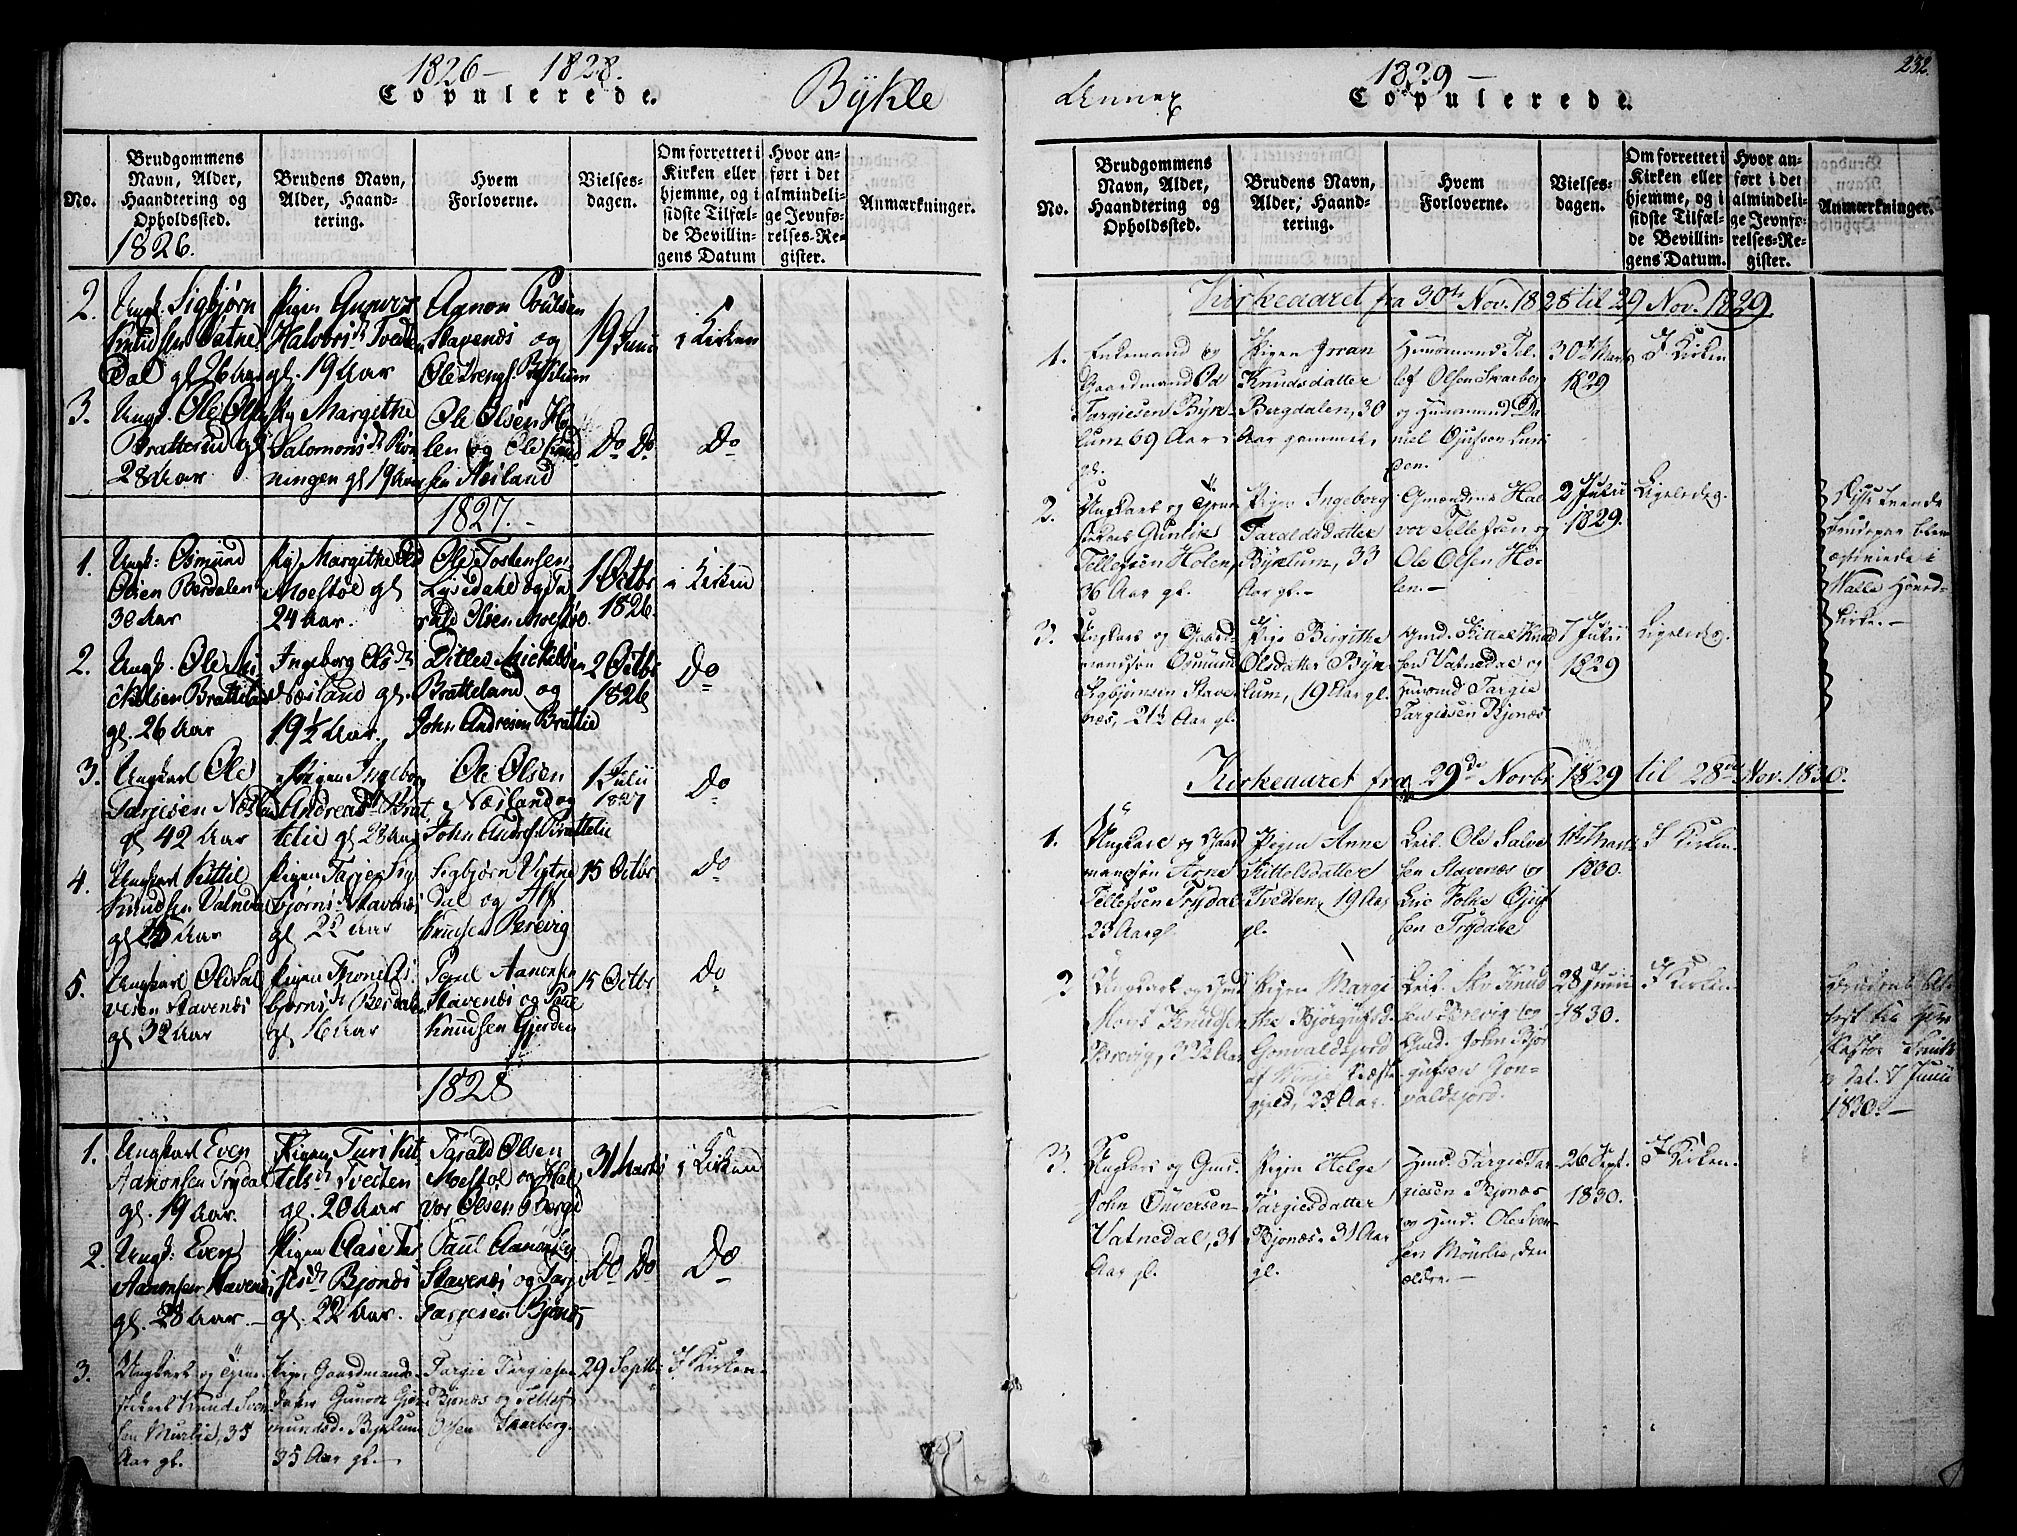 1826 – 1828.
Copulerede.
Bykle
No.
Brudgommens
Navn, Alder,
Haandtering og
Opholdssted.
Brudens Navn,
Alder, Haand-
tering.
Hvem
Forloverne.
Vielses-
dagen.
Om forrettet i
Kirken eller
hjemme, og i
sidste Tilfæl-
de Bevillin-
gens Datum
Hvor an-
ført i det
almindeli-
ge Jevnfø-
relses-Re-
gister.
Anmærkninger.
1826.
2.
Ungk. Sigbjørn
Knudsen Vatne
Dal gl 26 Aar
Pigen Gunvor
Halvorsdr Tvedten
gl. 19 Aar
Aanon Poulsen
Stavenæs og
Ole
19 Junii
i Kirken
3.
Ungk. Ole Olsen
Bratterud gl
28 Aar
Pig Margithe
Salomonsdr
ningen gl 19 Aar
Ole Olsen Ho-
len og Ole Knud
sen Næsland
Do Do
Do
1827.
1.
Ungk: Osmund
Olsen Berdalen
30 Aar
Pig Margithe Olsd
Moestøl gl
24 Aar.
Ole Tostensen
Lysedahl og Ta
rald Olsen Moestøl
1 Octbr
1826
i Kirken
2.
Ungk. Ole Mi
chelsen Bratteland
gl. 26 Aar
Ingeborg Olsdr
Næsland gl.
19½ Aar.
Ditlev Mickelsen
Bratteland og
John Andresen Brattelie
2 Octbr
1826
Do
3.
Ungkarl Ole
Tarjesen Næsland
gl 42 Aar
Pigen Ingeborg
Andreasdr Brat
telie gl 28 Aar
Ole Olsen
Næsland og
John Andres. Brattelie
1 Julii
1827
Do
4.
Ungkarl Kittil
Knudsen Vatnedal
gl 25 Aar
Pigen Tarjer Sig
bjørnsdr Stavenæs
gl 22 Aar
Sigbjørn Vatne
Dal og Alf
Knudsen Berevig
15 Octbr
Do
5.
Ungkarl Ole Sal
vesen Stavenæs
gl 32 Aar
Pigen Thone
bjørnsdr Berdalen
gl 16 Aar
Poul Aanonsen
Stavenæs og
Knudsen Gjerden
15 Octbr
Do
1828
1.
Ungkarl Even
Aanonsen Trydal
gl. 19 Aar.
Pigen Turi Kit
telsdr Tvedten
gl. 20 Aar
Tarald Olsen
Moestøl og Hal
vor Olsen Berge
31 Marts
i Kirken
2.
Ungk: Even
Aanonsen Stavenæs
gl. 28 Aar.
Pigen Aase Tar
jesdr Bjonæs
gl. 22 Aar.
Paul Aanonsen
Stavenæs og Tarje
Tarjesen Bjønæs
Do Do
Do
3.
Ungkarl og Tjene-
stekarl Knud Sven
sen Murlie, 35
Aar gl.
Pigen Gaardmands-
datter Gunvor
mundsd. Byklum
35 Aar gl.
Targie Targiesen
Bjonæs og Tellef
Olsen Skarberg.
29 Septbr
I Kirken
Annex
1829 –
Copulerede.
232
No.
Brudgommens
Navn, Alder,
Haandtering og
Opholdssted.
Brudens Navn,
Alder, Haand-
tering.
Hvem
Forloverne.
Vielses-
dagen.
Om forrettet i
Kirken eller
hjemme, og i
sidste Tilfæl-
de Bevillin-
gens Datum.
Hvor an-
ført i det
almindeli-
ge Jevnfø-
relses-Re-
gister.
Anmærkninger.
Kirkeaaret fra 30te Nov. 1828 til 29 Nov. 1829.
1.
Enkemand og
Gaardmand
Targiesen Byk-
lum 69 Aar
gl.
Pigen Joran
Knudsdatter
Bergdalen, 30
Aar gammel,
Huusmand Tel-
lef Olsen Skarberg
og Huusmand Da
niel
den.
30te Marts
1829
I Kirken
2.
Ungkarl og Tjene
stekarl Gunlik
Tellefsen Holen,
36 Aar gl.
Pigen Ingeborg
Taraldsdatter
Byklum, 33
Aar gl.
Gmændene Hal
vor Tellefsen og
Ole Olsen Ho-
len.
2 Julii
1829.
Ligeledes.
Disse tvende
Brudepar bleve
copulerede i
Walle Hoved-
kirke.
3.
Ungkarl og Gaard-
mandssøn Osmund
Sigbjørnsen Stave
næs, 21½ Aar gl.
Pige Birgitte
Olsdatter Byk
lum, 19 Aar gl.
Gmd. Kittel Knud
sen Vatnedal og
Huusmd Targie
Targiesen Bjonæs
7 Julii
1829
Ligeledes.
Kirkeaaret fra 29de Novbr 1829 til 28de Nov. 1830.
1.
Ungkarl og Gaard
mandssøn Arne
Tellefsen Trydal
23 Aar gl.
Pigen Anne
Kittelsdatter
Tvedten, 19 Aar
gl.
Ole Salve
sen Stavenæs og
Folke
sen Trydal
Marts
1830.
I Kirken
2
Ungkarl og
Knudsen
Brevig, 32½ Aar
Pigen Margi
the Bjørgufsd.
Gonvaldsjord
af
gjeld, 25 Aar.
Knud
sen Brevig og
Gmd. John Bjør
gufsen Gon-
valdsjord.
28 Junii
1830.
I Kirken
Brudens At-
test fra
Pastor
dat. 7 Junii
1830.
3.
Ungkarl og Gmd.
John Onversen
Vatnedal, 31
Aar gl.
Pigen Helge
Targiesdatter
Bjonæs. 31 Aar
gl.
Targie Tar
giesen Bjonæs
og Hmd. Ole Sven
sen Mourlie, den
ældre.
26 Sept.
1830.
I Kirken